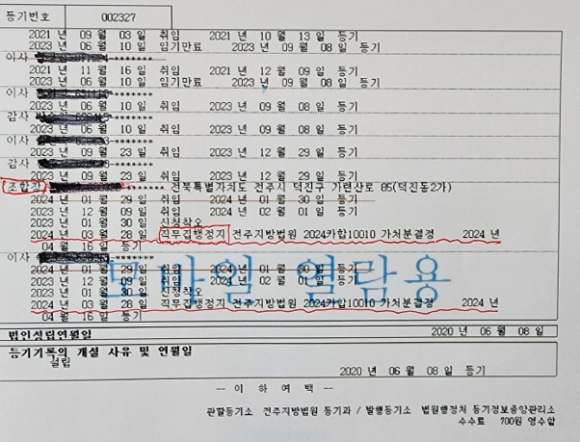 등기번호 002327
2021 년 09 월 03 일 취임 2021 년 10 월 13 일 등기
2023 년 06 월 10 일 임기만료 2023 년 09 월 08 일 등기
이사 *******
2021 년 11 월 16 일 취임 2021 년 12 월 09 일 등기
2023 년 06 월 10 일 임기만료 2023 년 09 월 08 일 등기
이사 *******
2023 년 06 월 10 일 취임 2023 년 09 월 08 일 등기
감사 *******
2023 년 06 월 10 일 취임 2023 년 09 월 08 일 등기
이사 *******
2023 년 09 월 23 일 취임 2023 년 12 월 29 일 등기
감사 *******
2023 년 09 월 23 일 취임 2023 년 12 월 29 일 등기
조합장 ******* 전북특별자치도 전주시 덕진구 가련산로 85(덕진동2가)
2024 년 01 월 29 일 취임 2024 년 01 월 30 일 등기
2023 년 12 월 09 일 취임 2024 년 02 월 01 일 등기
2024 년 01 월 30 일 신청착오
2024 년 03 월 28 일 직무집행정지 전주지방법원 2024카합10010 가처분결정 2024 년
04 월 16 일 등기
이사 *******
2024 년 01 월 29 일 취임 2024 년 01 월 30 일 등기
2023 년 12 월 09 일 취임 2024 년 02 월 01 일 등기
2023 년 01 월 30 일 신청착오
2024 년 01 월 28 일 직무집행정지 전주지방법원 2024카합10010 가처분결정 2024 년
04 월 16 일 등기
모바일 열람용
법인성립연월일 2020 년 06 월 08 일
등기기록의 개설 사유 및 연월일
설립
2020 년 06 월 08 일 등기
-- 이 하 여 백 --
관할등기소 전주지방법원 등기과 / 발행등기소 법원행정처 등기정보중앙관리소
수수료 700원 영수함